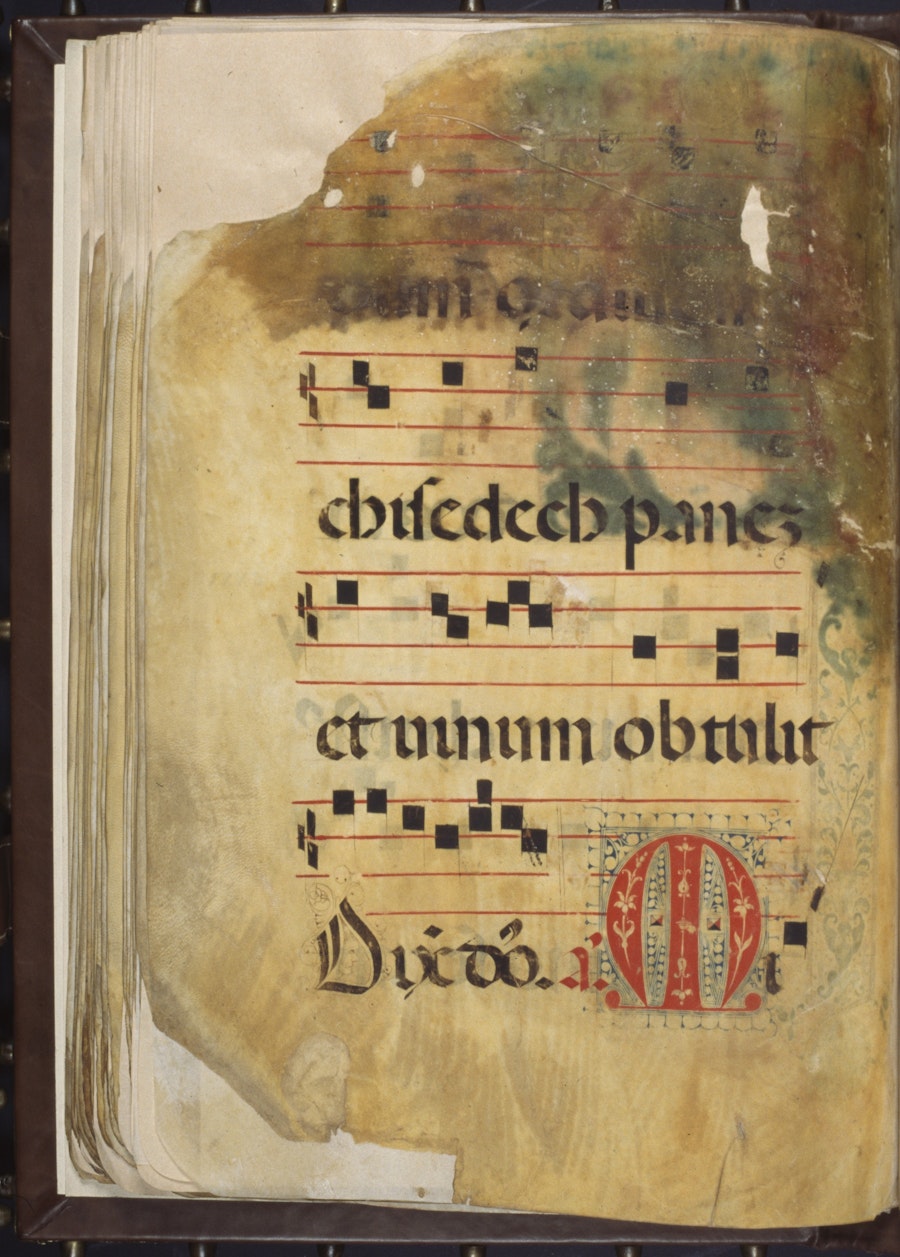 chisedech panez
et uinum obtulit
Dix̄ dō. ā. Mi